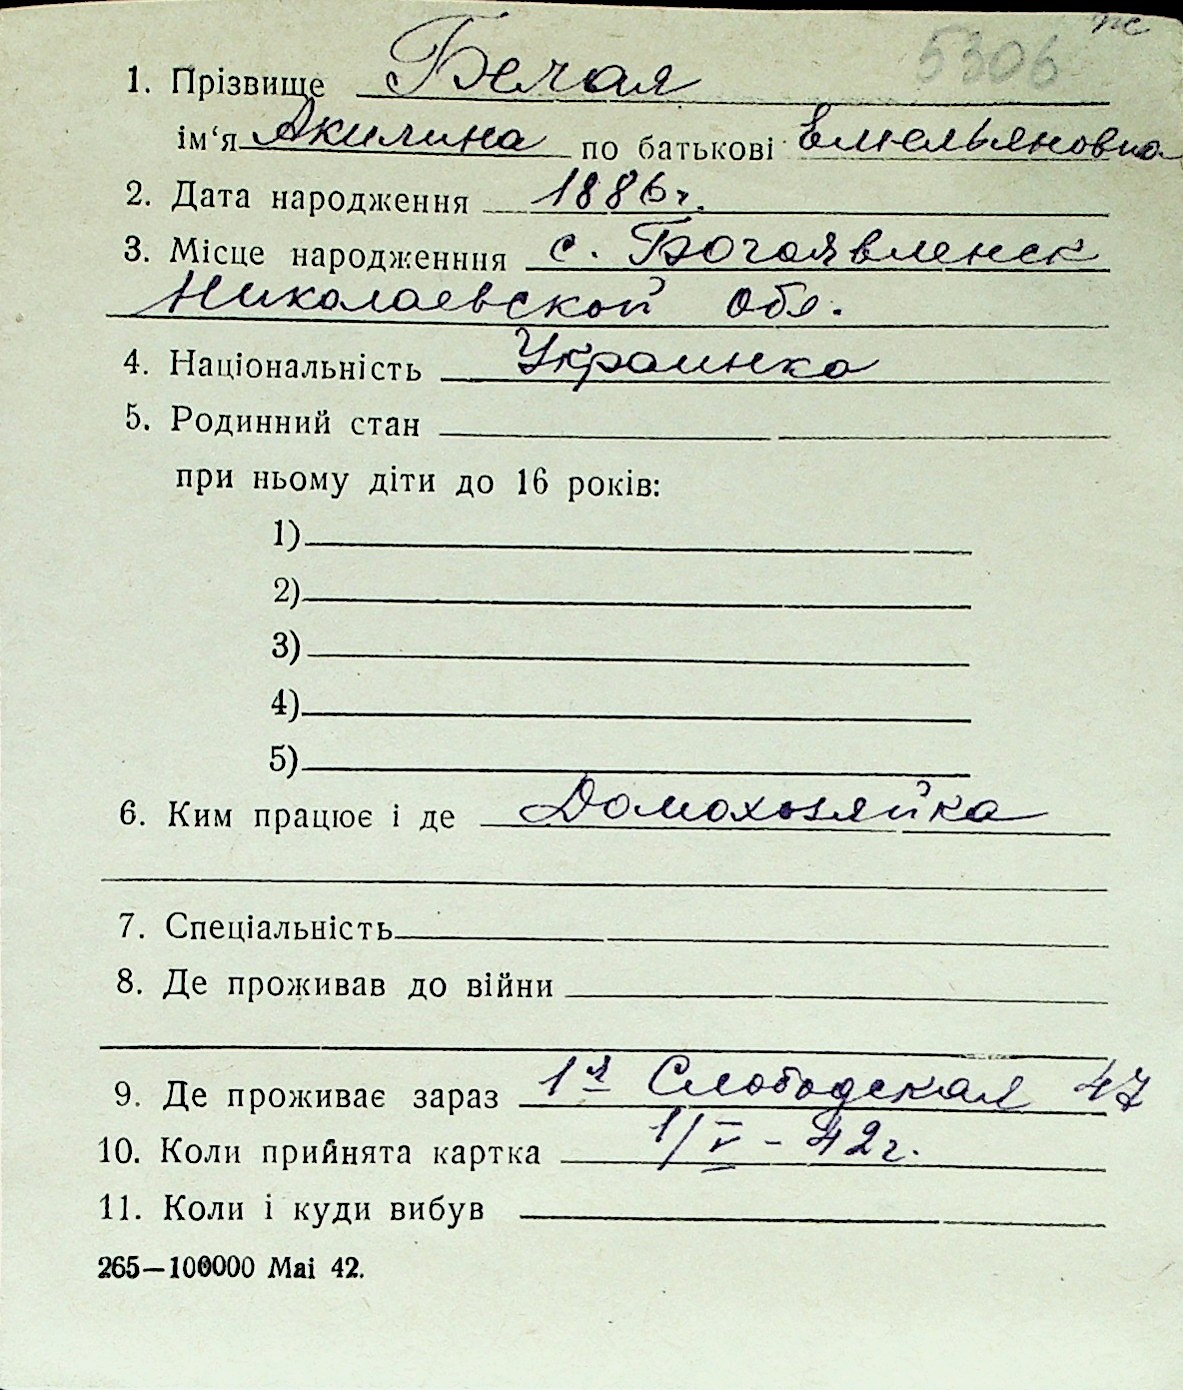 пс
5306
1. Прізвище Белая
ім‘я Акилина по батькові Емельяновна
2. Дата народження 1886г.
3. Місце народженння с. Богоявленск
Николаевской обл.
4. Національність Украинка
5. Родинний стан
при ньому діти до 16 років:
1)
2)
3)
4)
5)
6. Ким працює і де Домохозяйка
7. Спеціальність
8. Де проживав до війни
9. Де проживає зараз 1я Слободская 47
10. Коли прийнята картка 1/V - 42г.
11. Коли і куди вибув
265—100000 Mai 42.